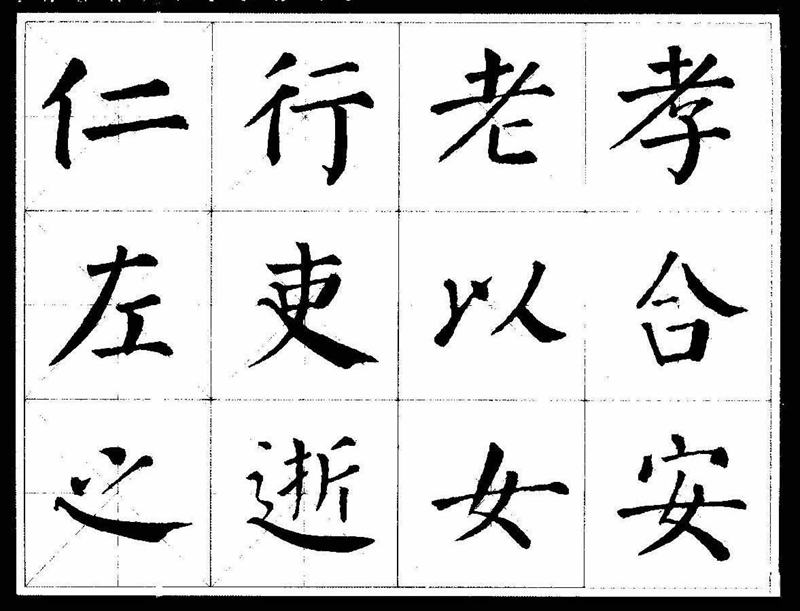 仁行老孝
左吏以合
之逝女安